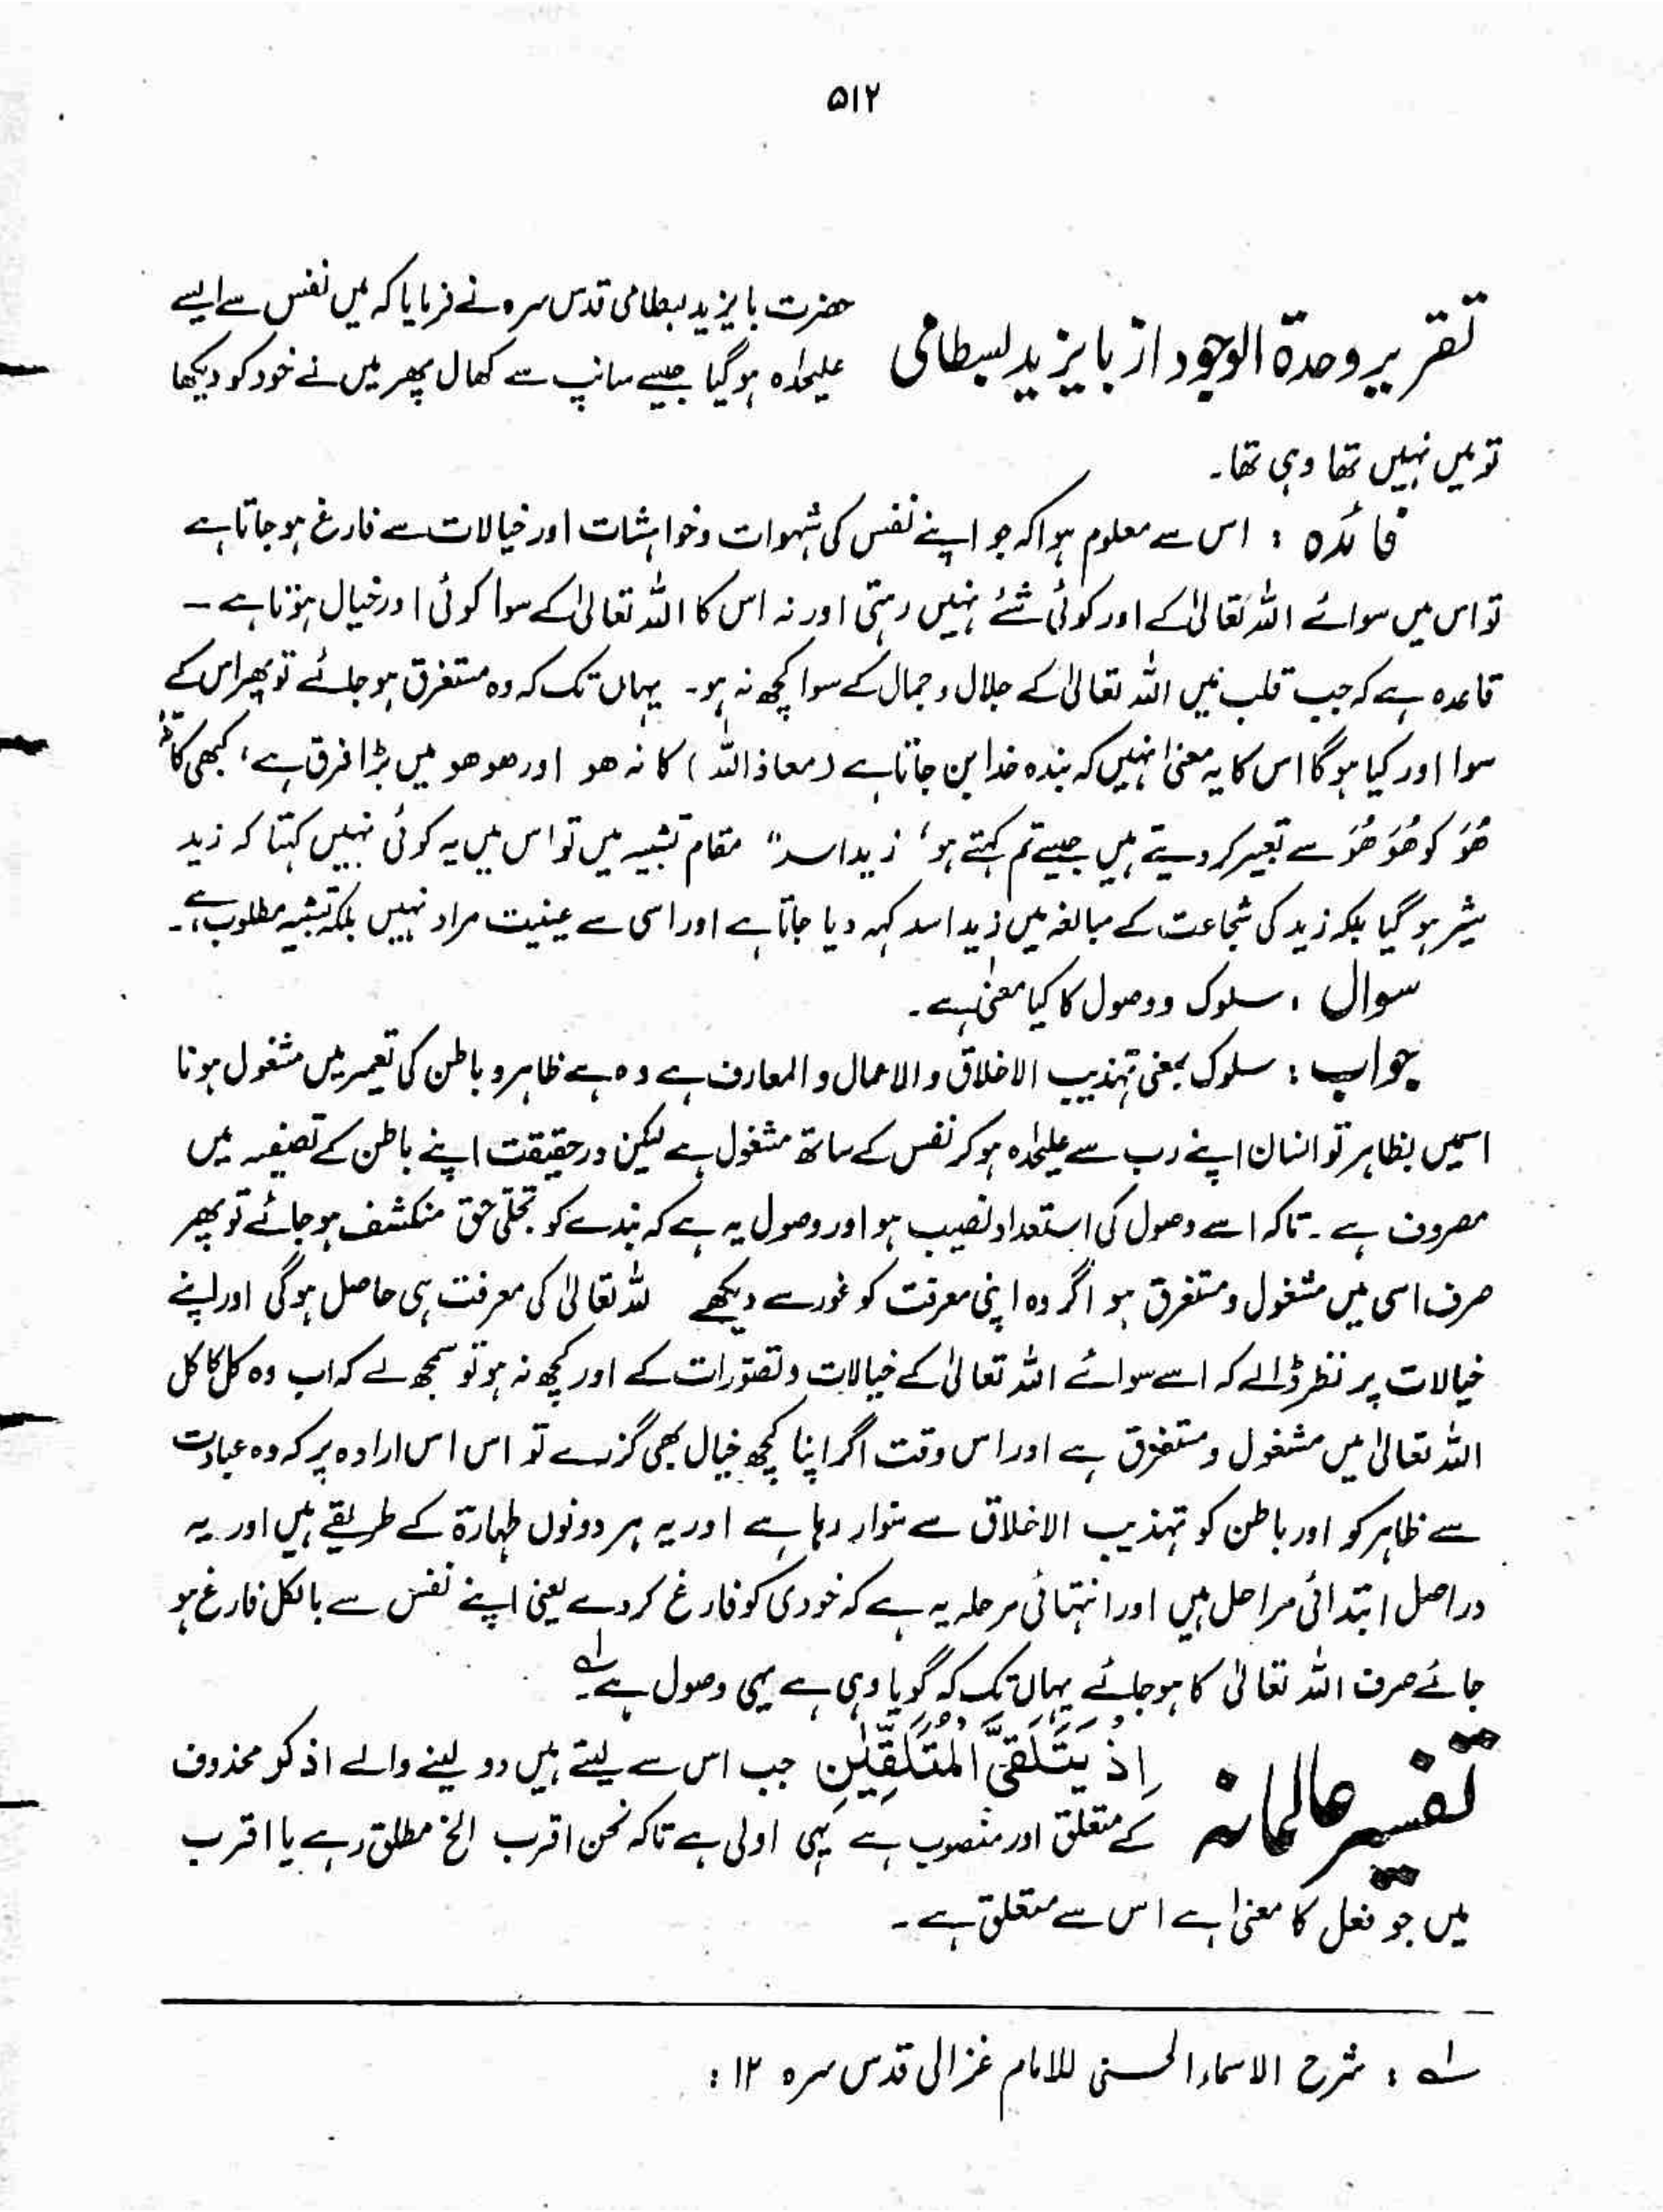 ۵۱۲
تقریر وحدۃ الوجود از بایزید بسطامی
حضرت بایزید بسطامی قدس سرہ نے فرمایا کہ میں نفس سے ایسے
علیحدہ ہوگیا جیسے سانپ سے کھال پھر میں نے خود کو دیکھا
تو میں نہیں تھا وہی تھا۔
فائدہ : اس سے معلوم ہوا کہ جو اپنے نفس کی شہوات وخواہشات اور خیالات سے فارغ ہوجاتا ہے
تو اس میں سوائے اللہ تعالیٰ کے اور کوئی شئے نہیں رہتی اور نہ اس کا اللہ تعالیٰ کے سوا کوئی اور خیال ہوتا ہے ۔
قاعدہ ہے کہ جب قلب میں اللہ تعالیٰ کے جلال وجمال کے سوا کچھ نہ ہو۔ یہاں تک کہ وہ مستغرق ہوجائے تو پھر اس کے
سوا اور کیا ہوگا اس کا یہ معنیٰ نہیں کہ بندہ خدا بن جاتا ہے (معاذ اللہ) کانہ ھو اور ھو ھو میں بڑا فرق ہے، کبھی کانہ
ھُوَ کو ھُوَ ھُوَ سے تعبیر کر دیتے ہیں جیسے تم کہتے ہو، زید اسد" مقام تشبیہ میں تو اس میں یہ کوئی نہیں کہتا کہ زید
شیر ہوگیا بلکہ زید کی شجاعت کے مبالغہ میں زید اسد کہہ دیا جاتا ہے اور اسی سے عینیت مراد نہیں بلکہ تشبیہ مطلوب ہے۔
سوال : سلوک ووصول کا کیا معنیٰ ہے۔
جواب : سلوک بمعنی تہذیب الاخلاق والاعمال والمعارف ہے وہ ہے ظاہر و باطن کی تعمیر میں مشغول ہونا
اسمیں بظاہر تو انسان اپنے رب سے علیحدہ ہوکر نفس کے ساتھ مشغول ہے لیکن درحقیقت اپنے باطن کے تصفیہ میں
مصروف ہے ۔ تاکہ اسے وصول کی استعداد نصیب ہو اور وصول یہ ہے کہ بندے کو تجلّی حق منکشف ہوجائے تو پھر
صرف اسی میں مشغول ومستغرق ہو اگر وہ اپنی معرفت کو غور سے دیکھے للہ تعالیٰ کی معرفت ہی حاصل ہوگی اور اپنے
خیالات پر نظر ڈالے کہ اسے سوائے اللہ تعالیٰ کے خیالات وتصوّرات کے اور کچھ نہ ہو تو سمجھ لے کہ اب وہ کل کا کل
اللہ تعالیٰ میں مشغول ومستغرق ہے اور اس وقت اگر اپنا کچھ خیال بھی گزرے تو اس اس ارادہ پر کہ وہ عبادت
سے ظاہر کو اور باطن کو تہذیب الاخلاق سے سنوار رہا ہے اور یہ ہر دونوں طہارۃ کے طریقے ہیں اور یہ
دراصل ابتدائی مراحل ہیں اور انتہائی مرحلہ یہ ہے کہ خودی کو فارغ کردے یعنی اپنے نفس سے بالکل فارغ ہو
جائے صرف اللہ تعالیٰ کا ہوجائے یہاں تک کہ گویا وہی ہے یہی وصول ہے۔ ؎۱
تفسیر عالمانہ
اِذْ یَتَلَقَّی الْمُتَلَقِّیٰنِ جب اس سے لیتے ہیں دو لینے والے اذکر محذوف
کے متعلق اور منصوب ہے یہی اولی ہے تاکہ نحن اقرب الخ مطلق رہے یا اقرب
میں جو فعل کا معنیٰ ہے اس سے متعلق ہے ۔
؎۱ : شرح الاسماء الحسنی للامام غزالی قدس سرہ ۱۲ :